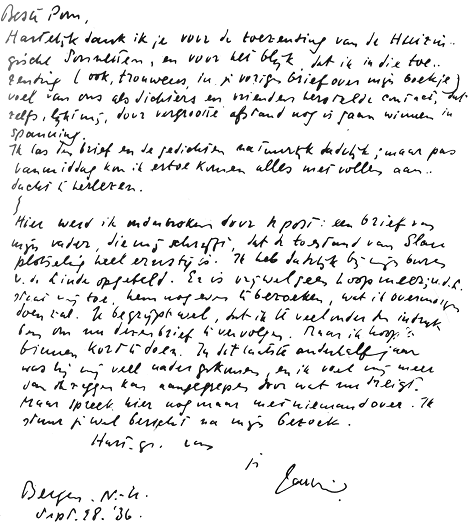 Beste Pom,
Hartelijk dank ik je voor de toezending van de
Sonnetten, en voor het blijk, dat ik in die toe-
zending (ook, trouwens, in je vorige brief over mijn boekje)
voel van ons als dichters en vrienden herstelde contact, dat
zelfs, lijkt mij, door vergroote afstand nog is gaan winnen in
spanning.
Ik las den brief en de gedichten natuurlijk dadelijk; maar pas
vanmiddag kon ik ertoe komen alles met volle aan-
dacht te herlezen.
Hier werd ik onderbroken door de post: een brief van
mijn vader, die mij schrijft, dat de toestand van
plotseling heel ernstig is. Ik heb dadelijk bij mijn buren
v. d. Linde opgebeld. Er is vrijwel geen hoop meer;
staat mij toe, hem nog even te bezoeken, wat ik overmorgen
doen zal. Je begrijpt wel, dat ik te veel onder den indruk
ben om nu dezen brief te vervolgen. Maar ik hoop 't
binnen kort te doen. In dit laatste anderhalf jaar
was hij mij veel nader gekomen, en ik voel mij meer
van dan aangegrepen door wat nu dreigt.
Maar spreek hier nog maar met niemand over. Ik
stuur je wel bericht na mijn bezoek.
Hart. gr. van
je
Bergen, N.-H.
Sept. 28. '36.